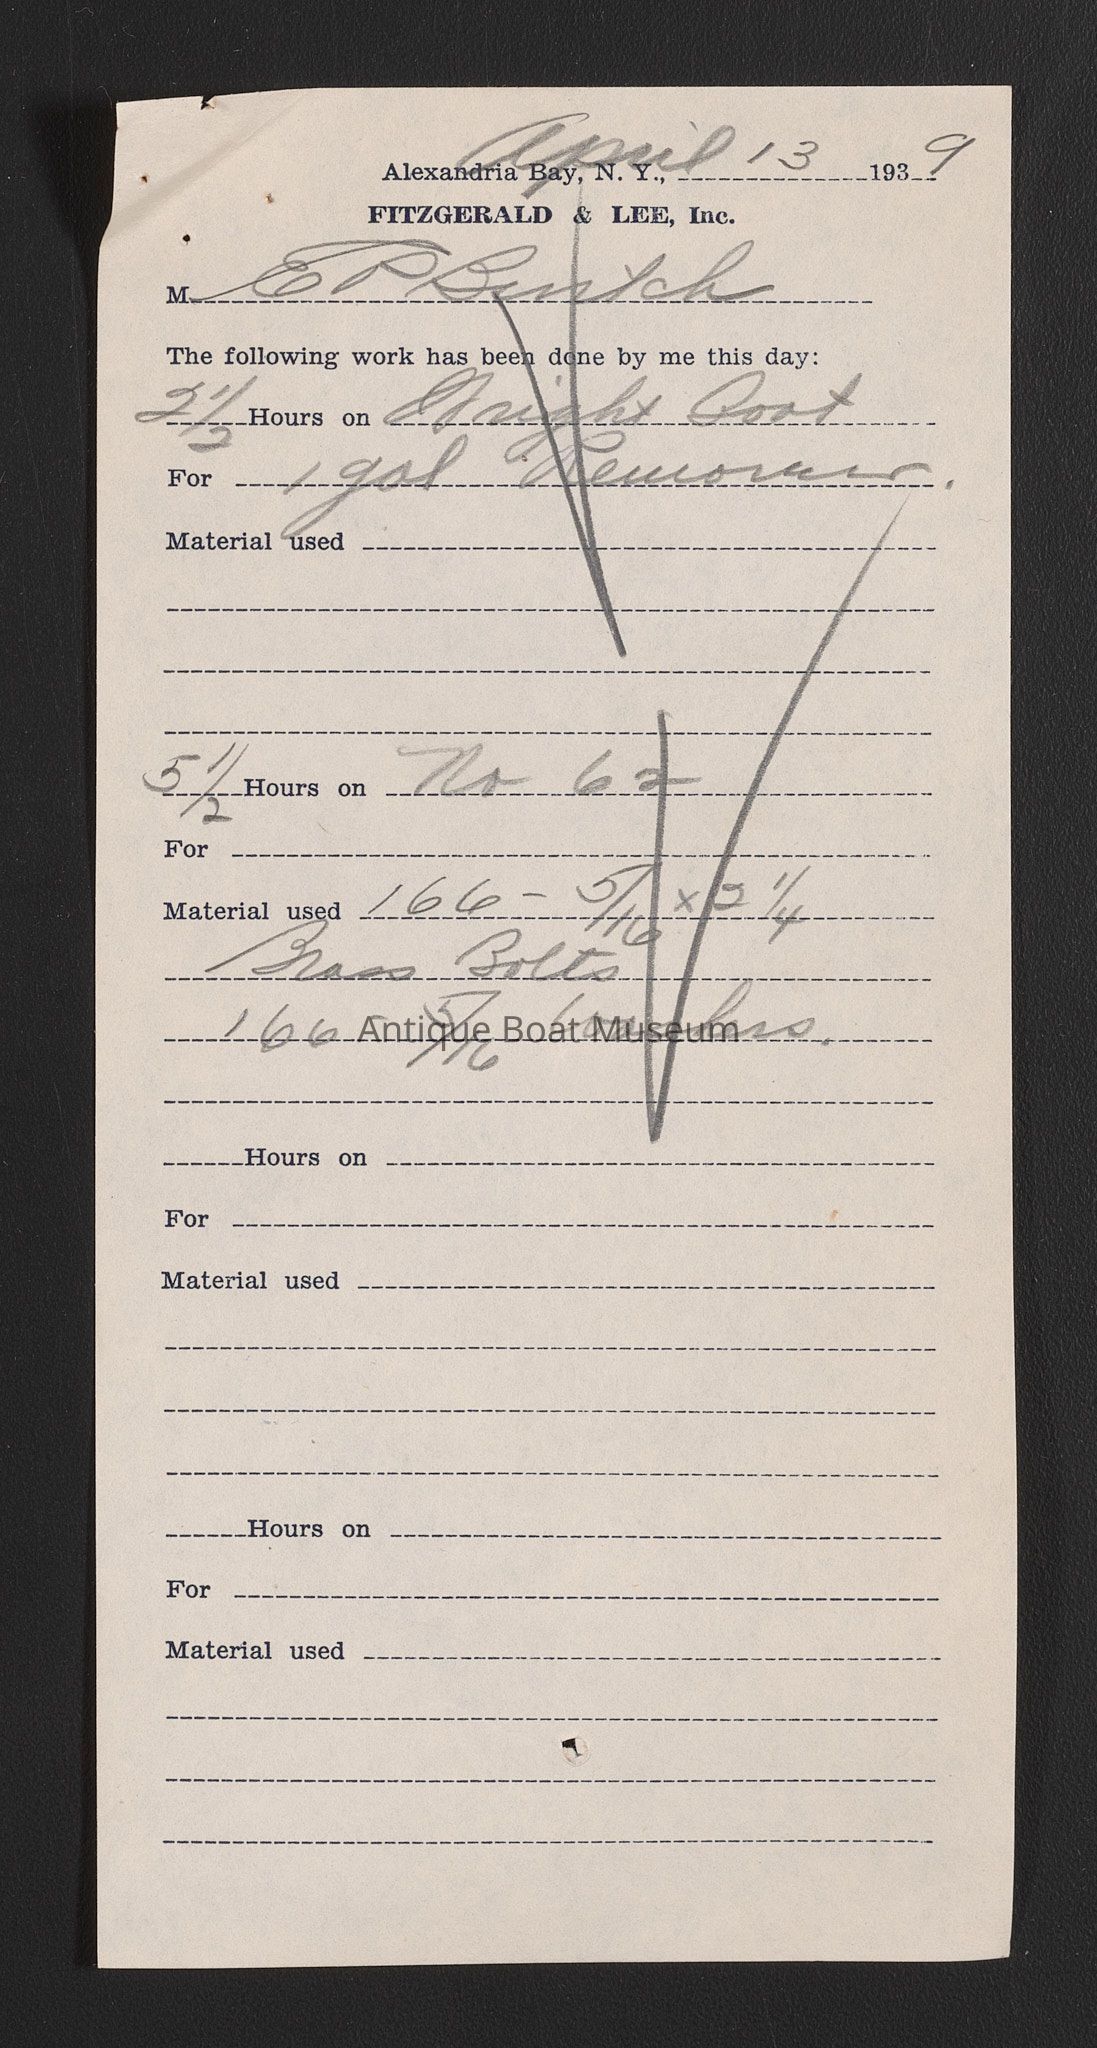 Alexandria Bay, N. Y., April 13 1939
FITZGERALD & LEE, Inc.
M E P
The following work has been done by me this day:
2 1/2 Hours on Wright Boat
For 1 gal Remover.
Material used
5 1/2 Hours on No 62
For
Material used 166 - 5/16 x 2 1/4
Brass Bolts
166 - 5/16 washers.
Antique Boat Museum
Hours on
For
Material used
Hours on
For
Material used